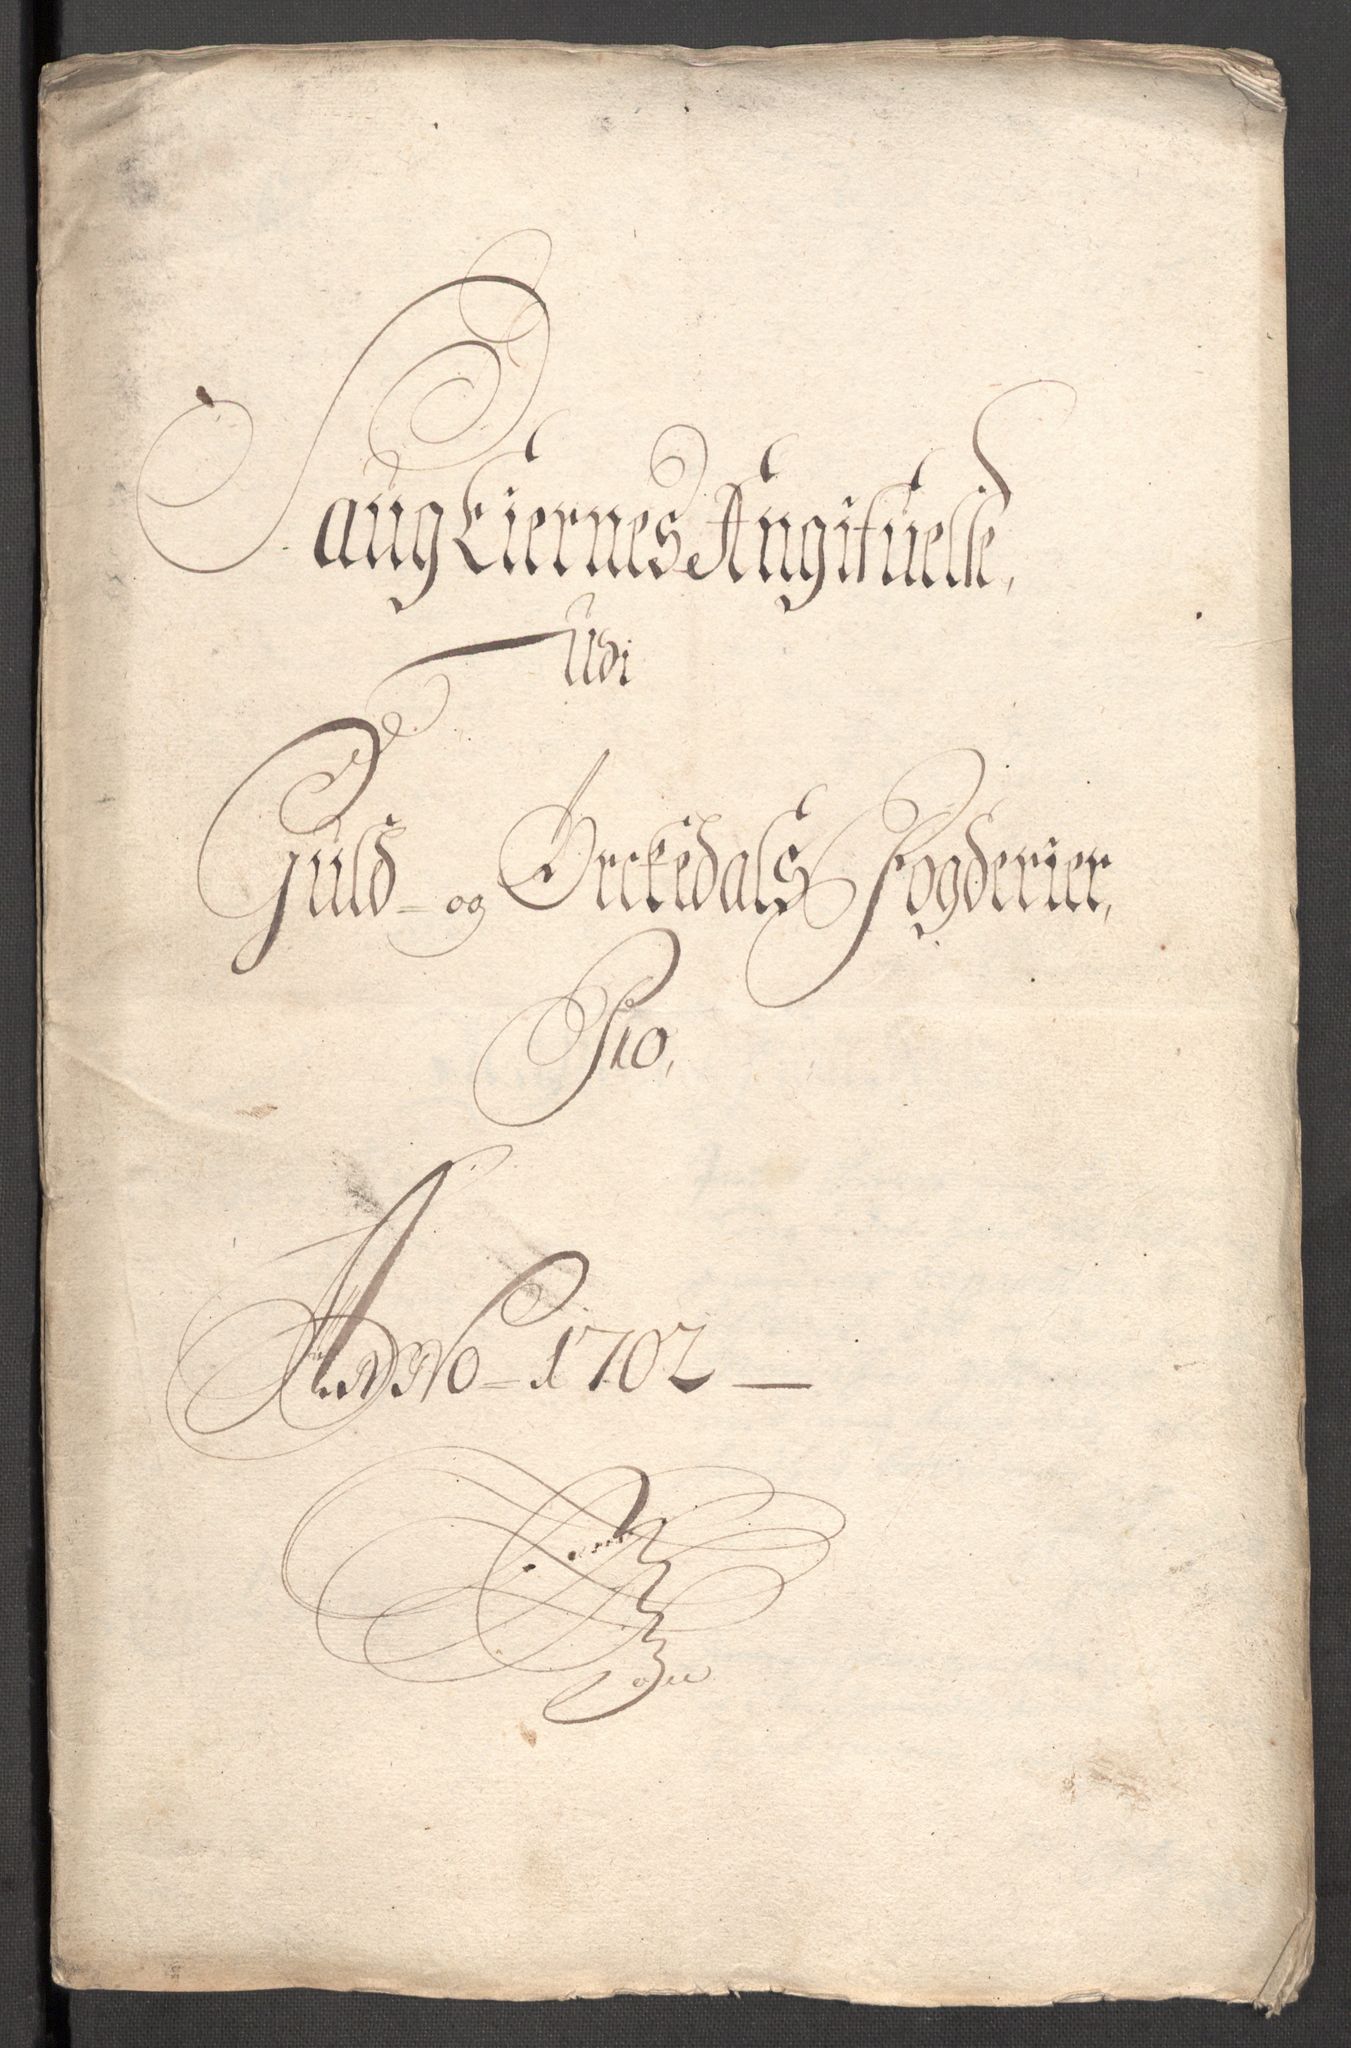 Saug Eiernes Angifuelse,
Udi
Guld- og Orckedals Fogderier,
Pro,
Anno - 1702 —